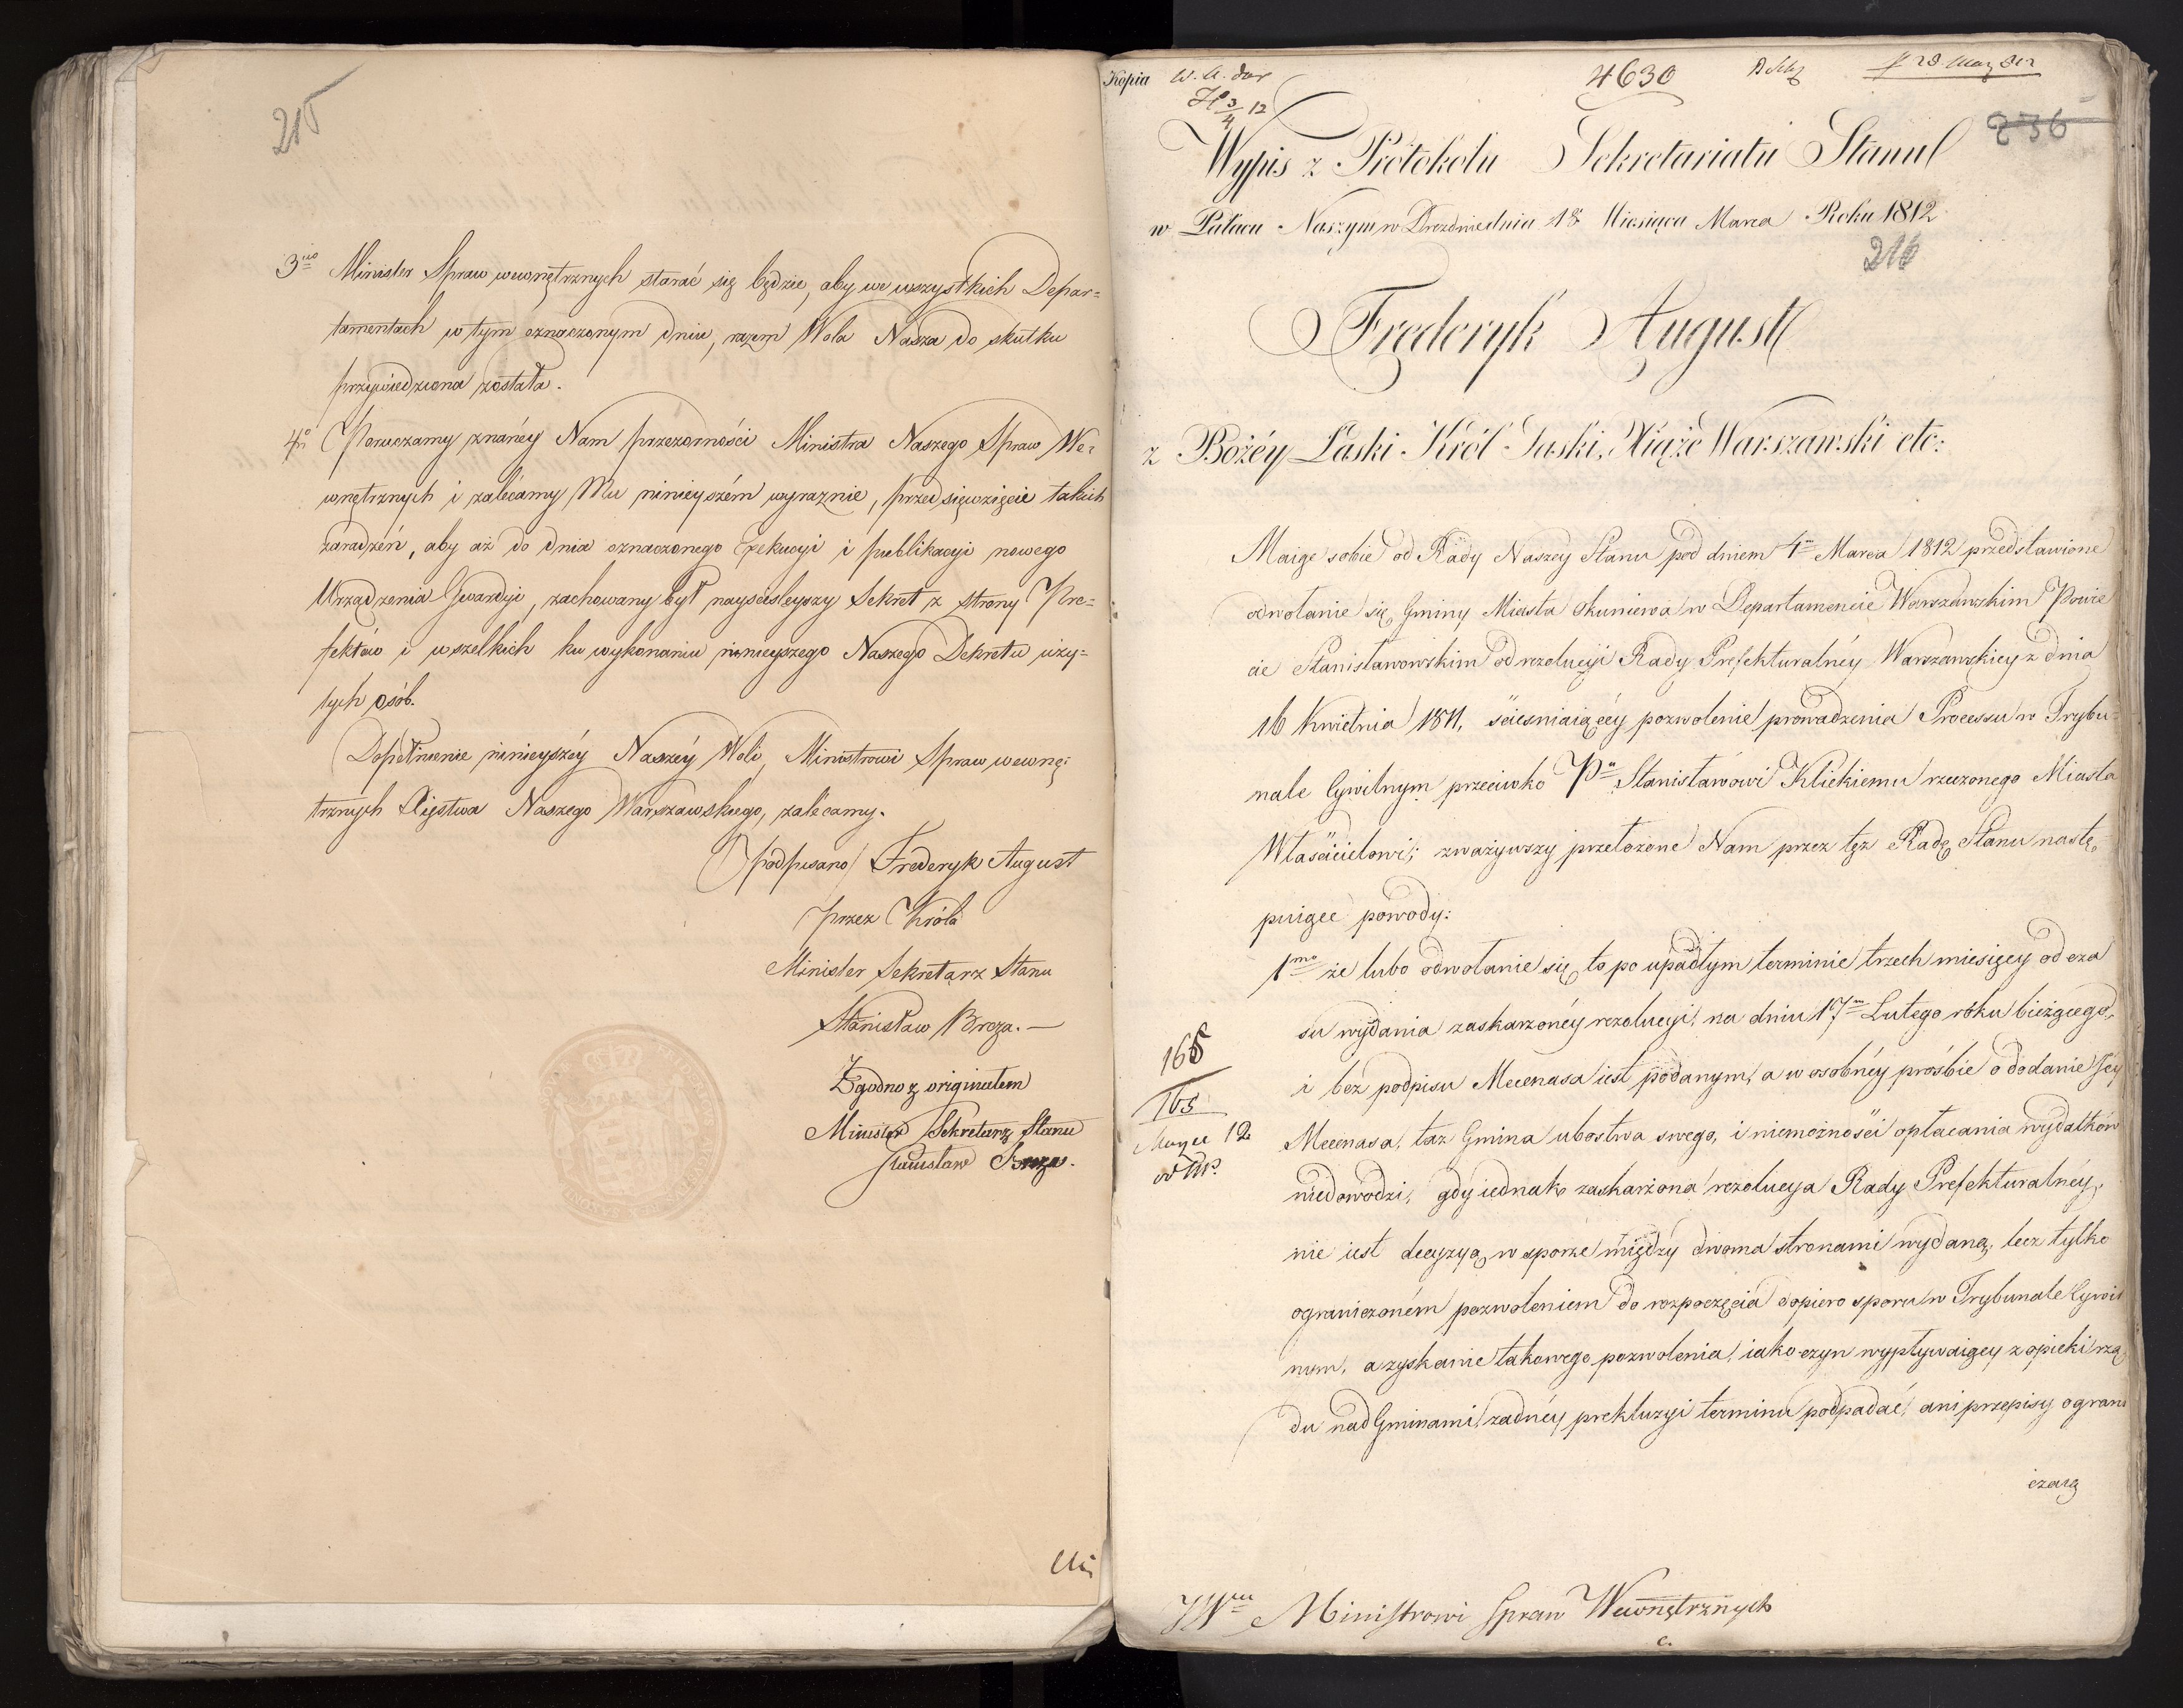 215
3tio Minister Spraw wewnętrznych starać się będzie, aby we wszystkich Depar=
tamentach w tym oznaczonym dniu, razem Wola Nasza do skutku
przywiedziona została.
4to Poruczamy znanéy Nam przezorności Ministra Naszego Spraw We=
wnętrznych i zalécamy Mu ninieyszém wyraznie, przedsięwzięcie takich
zaradzeń, aby aż do dnia oznaczonego Exekucyi i publikacyi nowego
Urządzenia Gwardyi, zachowany był nayściśleyszy Sekret z strony Pre=
fektów i wszelkich ku wykonaniu ninieyszego Naszego Dekretu uży=
tych osób.
Dopełnienie ninieyszéy Naszéy Woli, Ministrowi Spraw wewnę=
trznych Xięstwa Naszego Warszawskiego, zalecamy.
/podpisano/ Frederyk August
przez Króla
Minister Sekretarz Stanu
Stanisław Breza. —
Zgodno z originałem
Minister Sekretarz Stanu
Stanisław Breza.
Kopia
4630
236
Wypis z Protokołu Sekretariatu Stanu
w Pałacu Naszym w Dreznie dnia 18 Miesiąca Marca Roku 1812
216
Frederyk August
z Bożéy Łaski Król Saski, Xiąże Warszawski etc:
Maiąc sobie od Rady Naszey Stanu pod dniem 4m Marca 1812 przedstawione
odwołanie się Gminy Miasta Okuniewa w Departamencie Warszawskim Powie
cie Stanisławowskim od rezolucyi Rady Prefekturalnéy Warszawskiey z dnia
16 Kwietnia 1811, ścieśniaiącéy pozwolenie prowadzenia Processu w Trybu=
nale Cywilnym przeciwko Pu Stanisławowi Klickiemu rzeczonego Miasta
Właścicielowi; zważywszy przełożone Nam przez tęż Radę Stanu nastę=
puiące powody:
1mo że lubo odwołanie się to po upadłym terminie trzech miesięcy od cza
su wydania zaskarżonéy rezolucyi, na dniu 17m Lutego roku bieżącego,
i bez podpisu Mecenasa iest podanym, a w osobnéy prośbie o dodanie Jéy
Mecenasa, taż Gmina ubostwa swego, i niemożności opłacania wydatków
niedowodzi, gdy iednak zaskarżona rezolucya Rady Prefekturalnéy,
nie iest decyzyą w sporze między dwoma stronami wydaną, lecz tylko
ograniczoném pozwoleniem do rozpoczęcia dopiero sporu w Trybunale Cywil
nym, a zyskanie takowego pozwolenia, iako czyn wypływaiący z opieki rzą
du nad Gminami, żadnéy prekluzyi terminu podpadać, ani przepisy ograni
czaią
165
163
12
JWmu Ministrowi Spraw Wewnętrznych